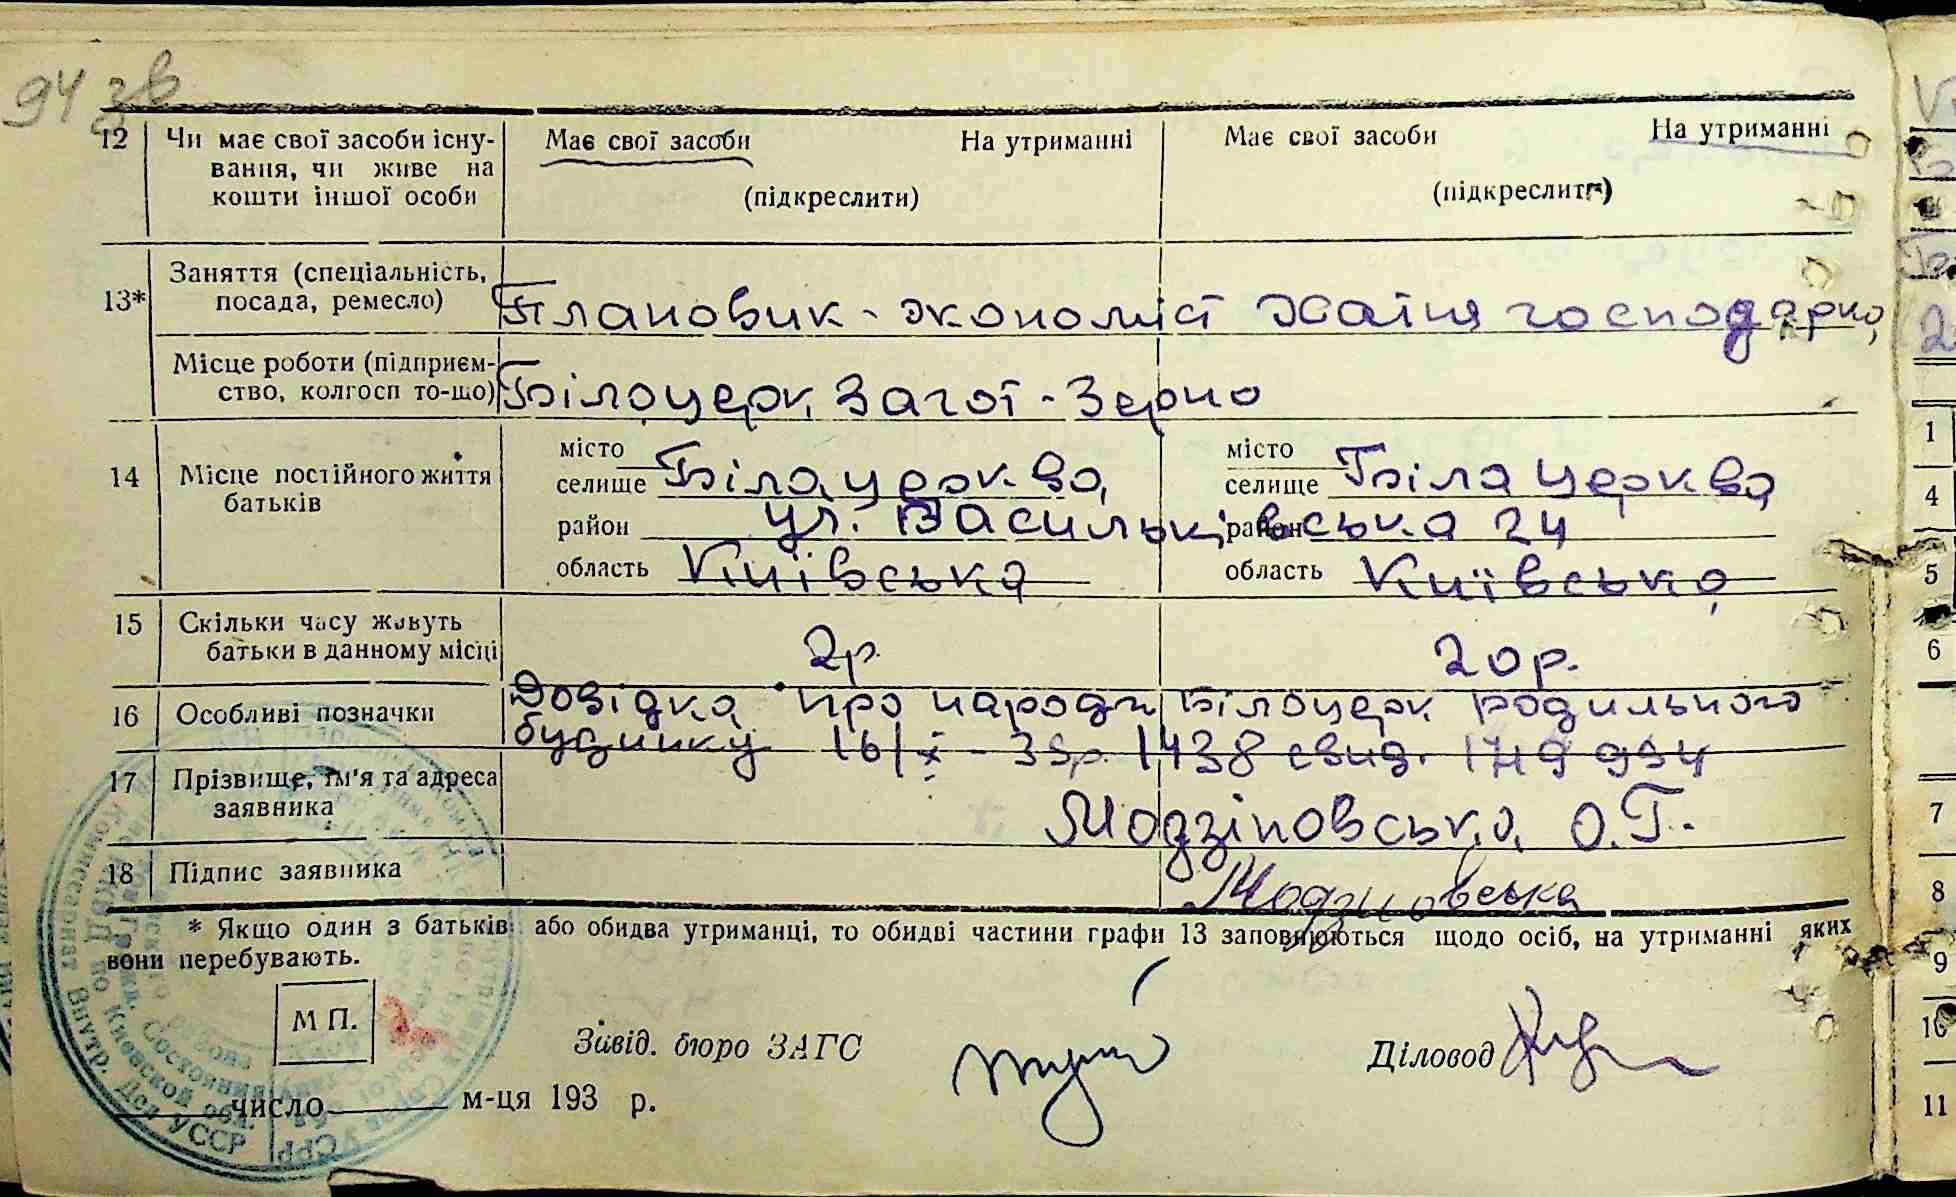 94 зв
12 Чи має свої засоби існу- Має свої засоби На утриманні Має свої засоби На утриманні
вання, чи живе на (підкреслити) (підкреслити)
кошти іншої особи
Заняття (спеціальність,
13* посада, ремесло) Плановик - экономіст Хатня господарка
Місце роботи (підприєм-
ство, колгосп то-що) Білоцерк. Загот-Зерно
місто місто
14 Місце постійного життя селище Біла церква селище Біла церква
батьків район ул. Васильківська 24 район
область Київська область Київська
15 Скільки часу живуть
батьки в данному місці 2р. 20р.
16 Особливі позначки Довідка про народж Білоцерк родильного
будинку 16/X - 39р. 1438 свид.
17 Прізвище, ім'я та адреса
заявника Модзіновська О.Г.
18 Підпис заявника Модзиновська
* Якщо один з батьків або обидва утриманці, то обидві частини графи 13 заповнюються щодо осіб, на утриманні яких
вони перебувають.
М П.
Завід. бюро ЗАГС Діловод
число м-ця 193 р.
Комиссариат Внутр. Дел УССР
по Киевской обл.
1
4
5
6
7
8
9
10
11